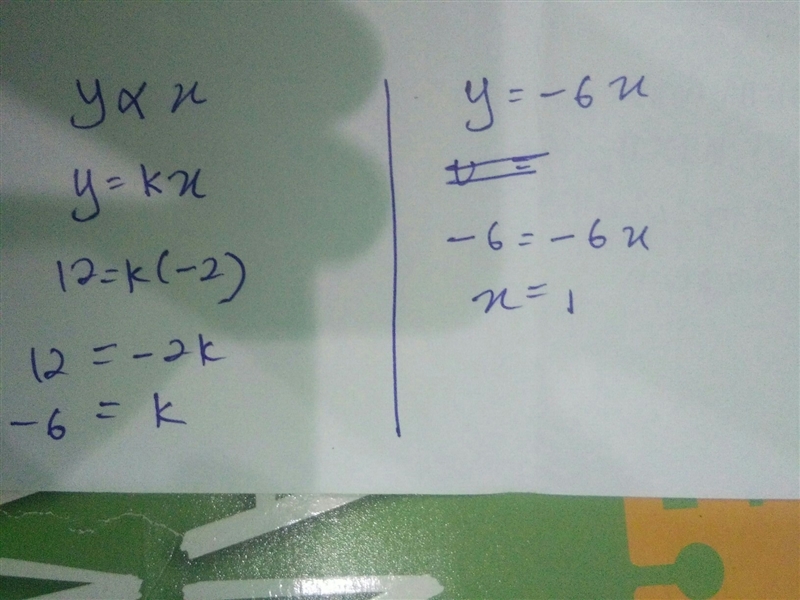 y ∝ x
y = kx
12 = k(-2)
12 = -2k
-6 = k
y = -6x
-6 = -6x
x = 1